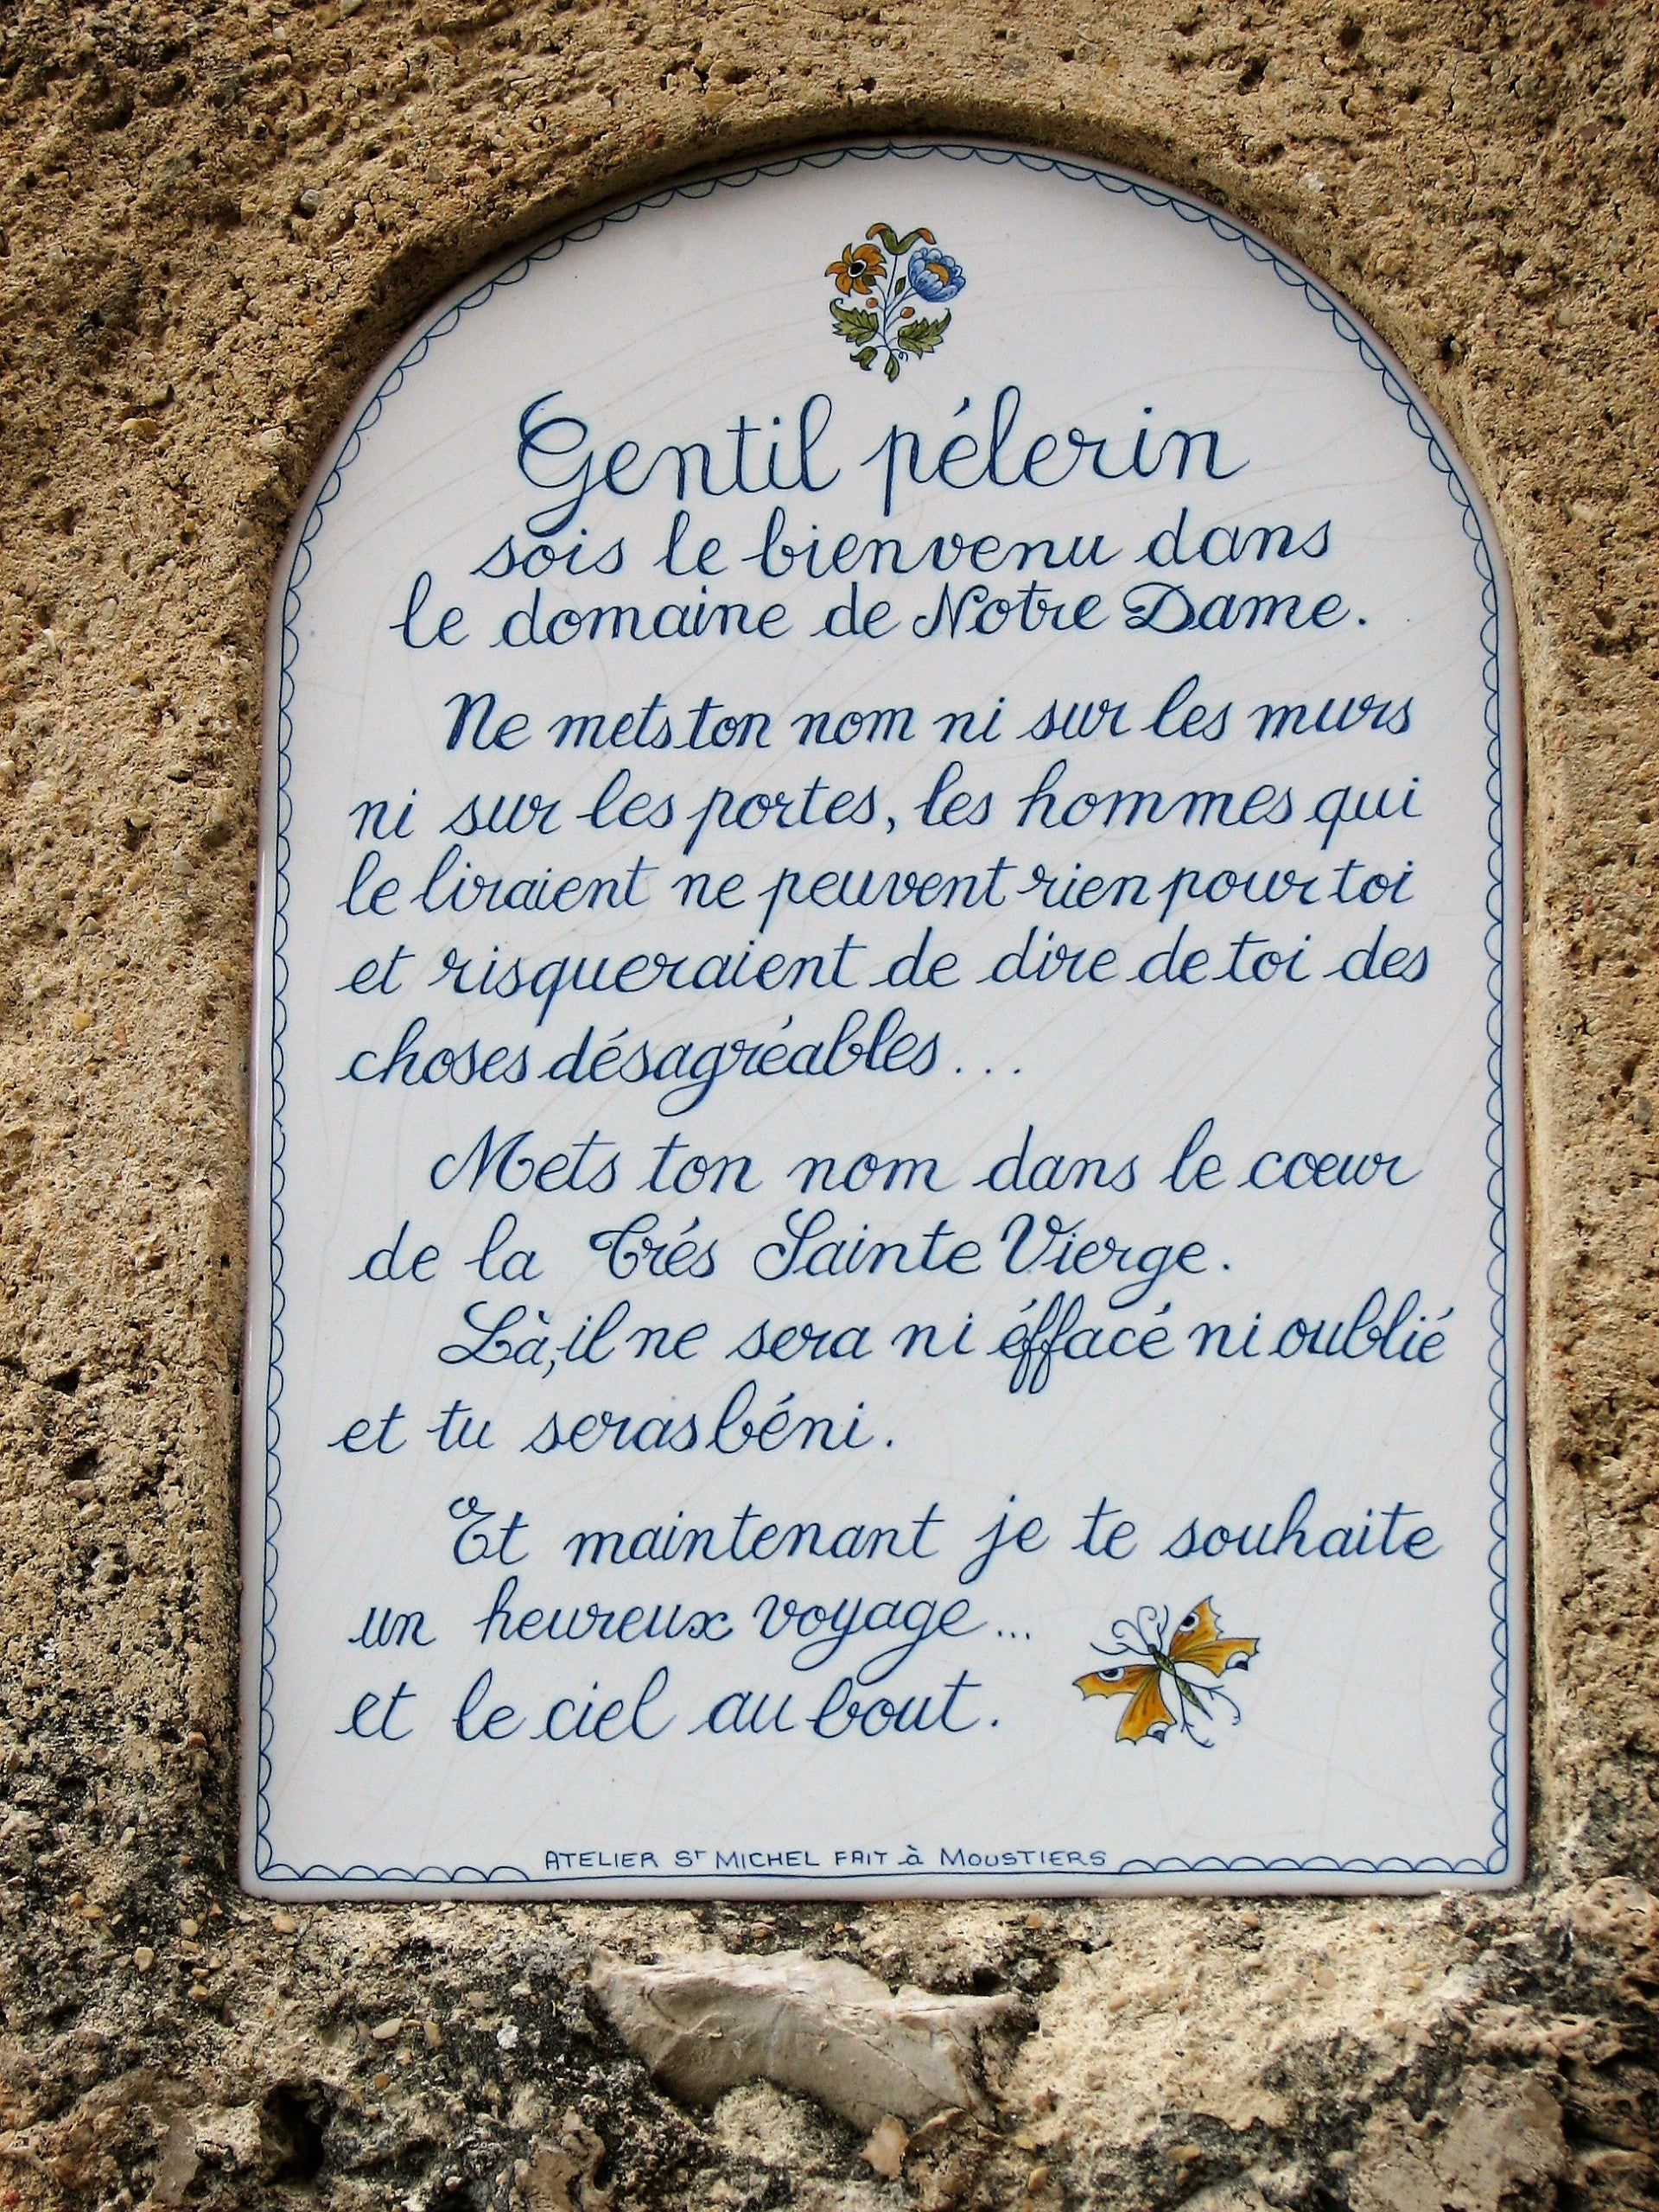 Gentil pélerin
sois le bienvenu dans
le domaine de Notre Dame.
Ne mets ton nom ni sur les murs
ni sur les portes, les hommes qui
le liraient ne peuvent rien pour toi
et risqueraient de dire de toi des
choses désagréables...
Mets ton nom dans le cœur
de la Trés Sainte Vierge.
Là, il ne sera ni éffacé ni oublié
et tu seras béni.
Et maintenant je te souhaite
un heureux voyage...
et le ciel au bout.
ATELIER ST MICHEL FAIT à MOUSTIERS